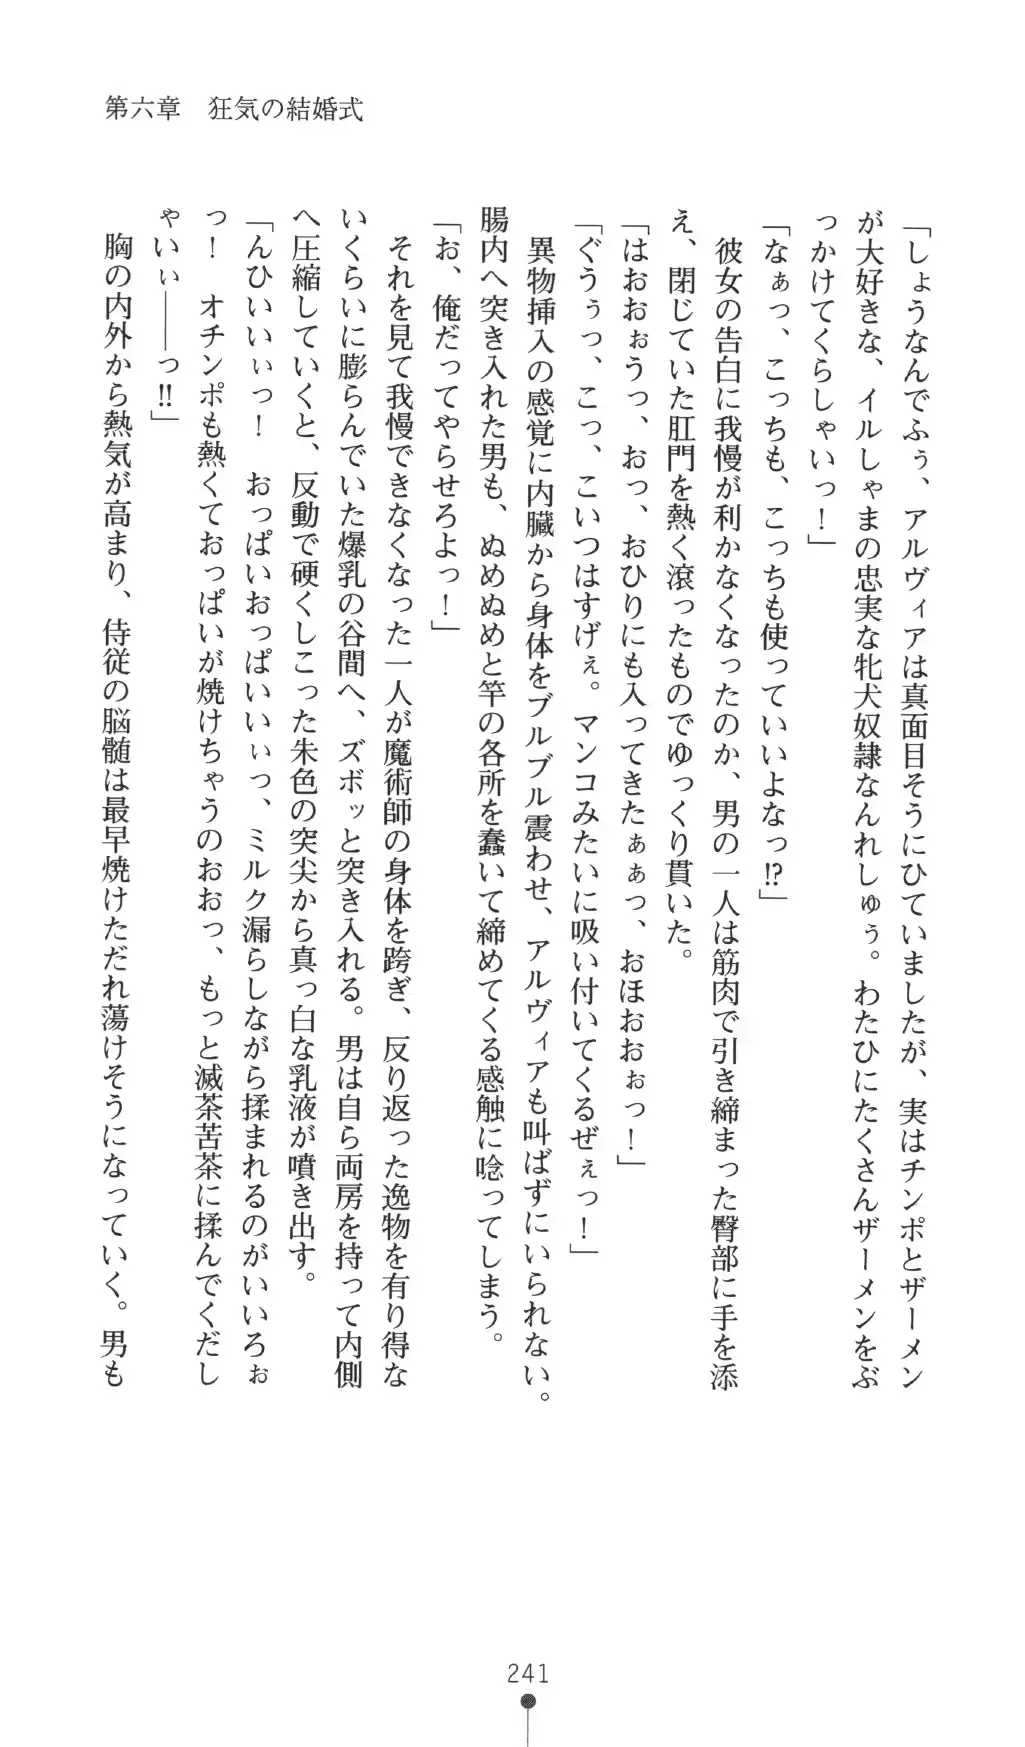 第六章　狂気の結婚式
「しょうなんでふぅ、アルヴィアは真面目そうにひていましたが、実はチンポとザーメン
が大好きな、イルしゃまの忠実な牝犬奴隷なんれしゅぅ。わたひにたくさんザーメンをぶ
っかけてくらしゃいっ！」
「なぁっ、こっちも、こっちも使っていいよなっ!?」
　彼女の告白に我慢が利かなくなったのか、男の一人は筋肉で引き締まった臀部に手を添
え、閉じていた肛門を熱く滾ったものでゆっくり貫いた。
「はおおぉうっ、おっ、おひりにも入ってきたぁぁっ、おほおおぉっ！」
「ぐうぅっ、こっ、こいつはすげぇ。マンコみたいに吸い付いてくるぜぇっ！」
　異物挿入の感覚に内臓から身体をブルブル震わせ、アルヴィアも叫ばずにいられない。
腸内へ突き入れた男も、ぬめぬめと竿の各所を蠢いて締めてくる感触に唸ってしまう。
「お、俺だってやらせろよっ！」
　それを見て我慢できなくなった一人が魔術師の身体を跨ぎ、反り返った逸物を有り得な
いくらいに膨らんでいた爆乳の谷間へ、ズボッと突き入れる。男は自ら両房を持って内側
へ圧縮していくと、反動で硬くしこった朱色の突尖から真っ白な乳液が噴き出す。
「んひいいぃっ！　おっぱいおっぱいいぃっ、ミルク漏らしながら揉まれるのがいいろぉ
っ！　オチンポも熱くておっぱいが焼けちゃうのおおっ、もっと滅茶苦茶に揉んでくだし
ゃいぃ――っ!!」
　胸の内外から熱気が高まり、侍従の脳髄は最早焼けただれ蕩けそうになっていく。男も
241